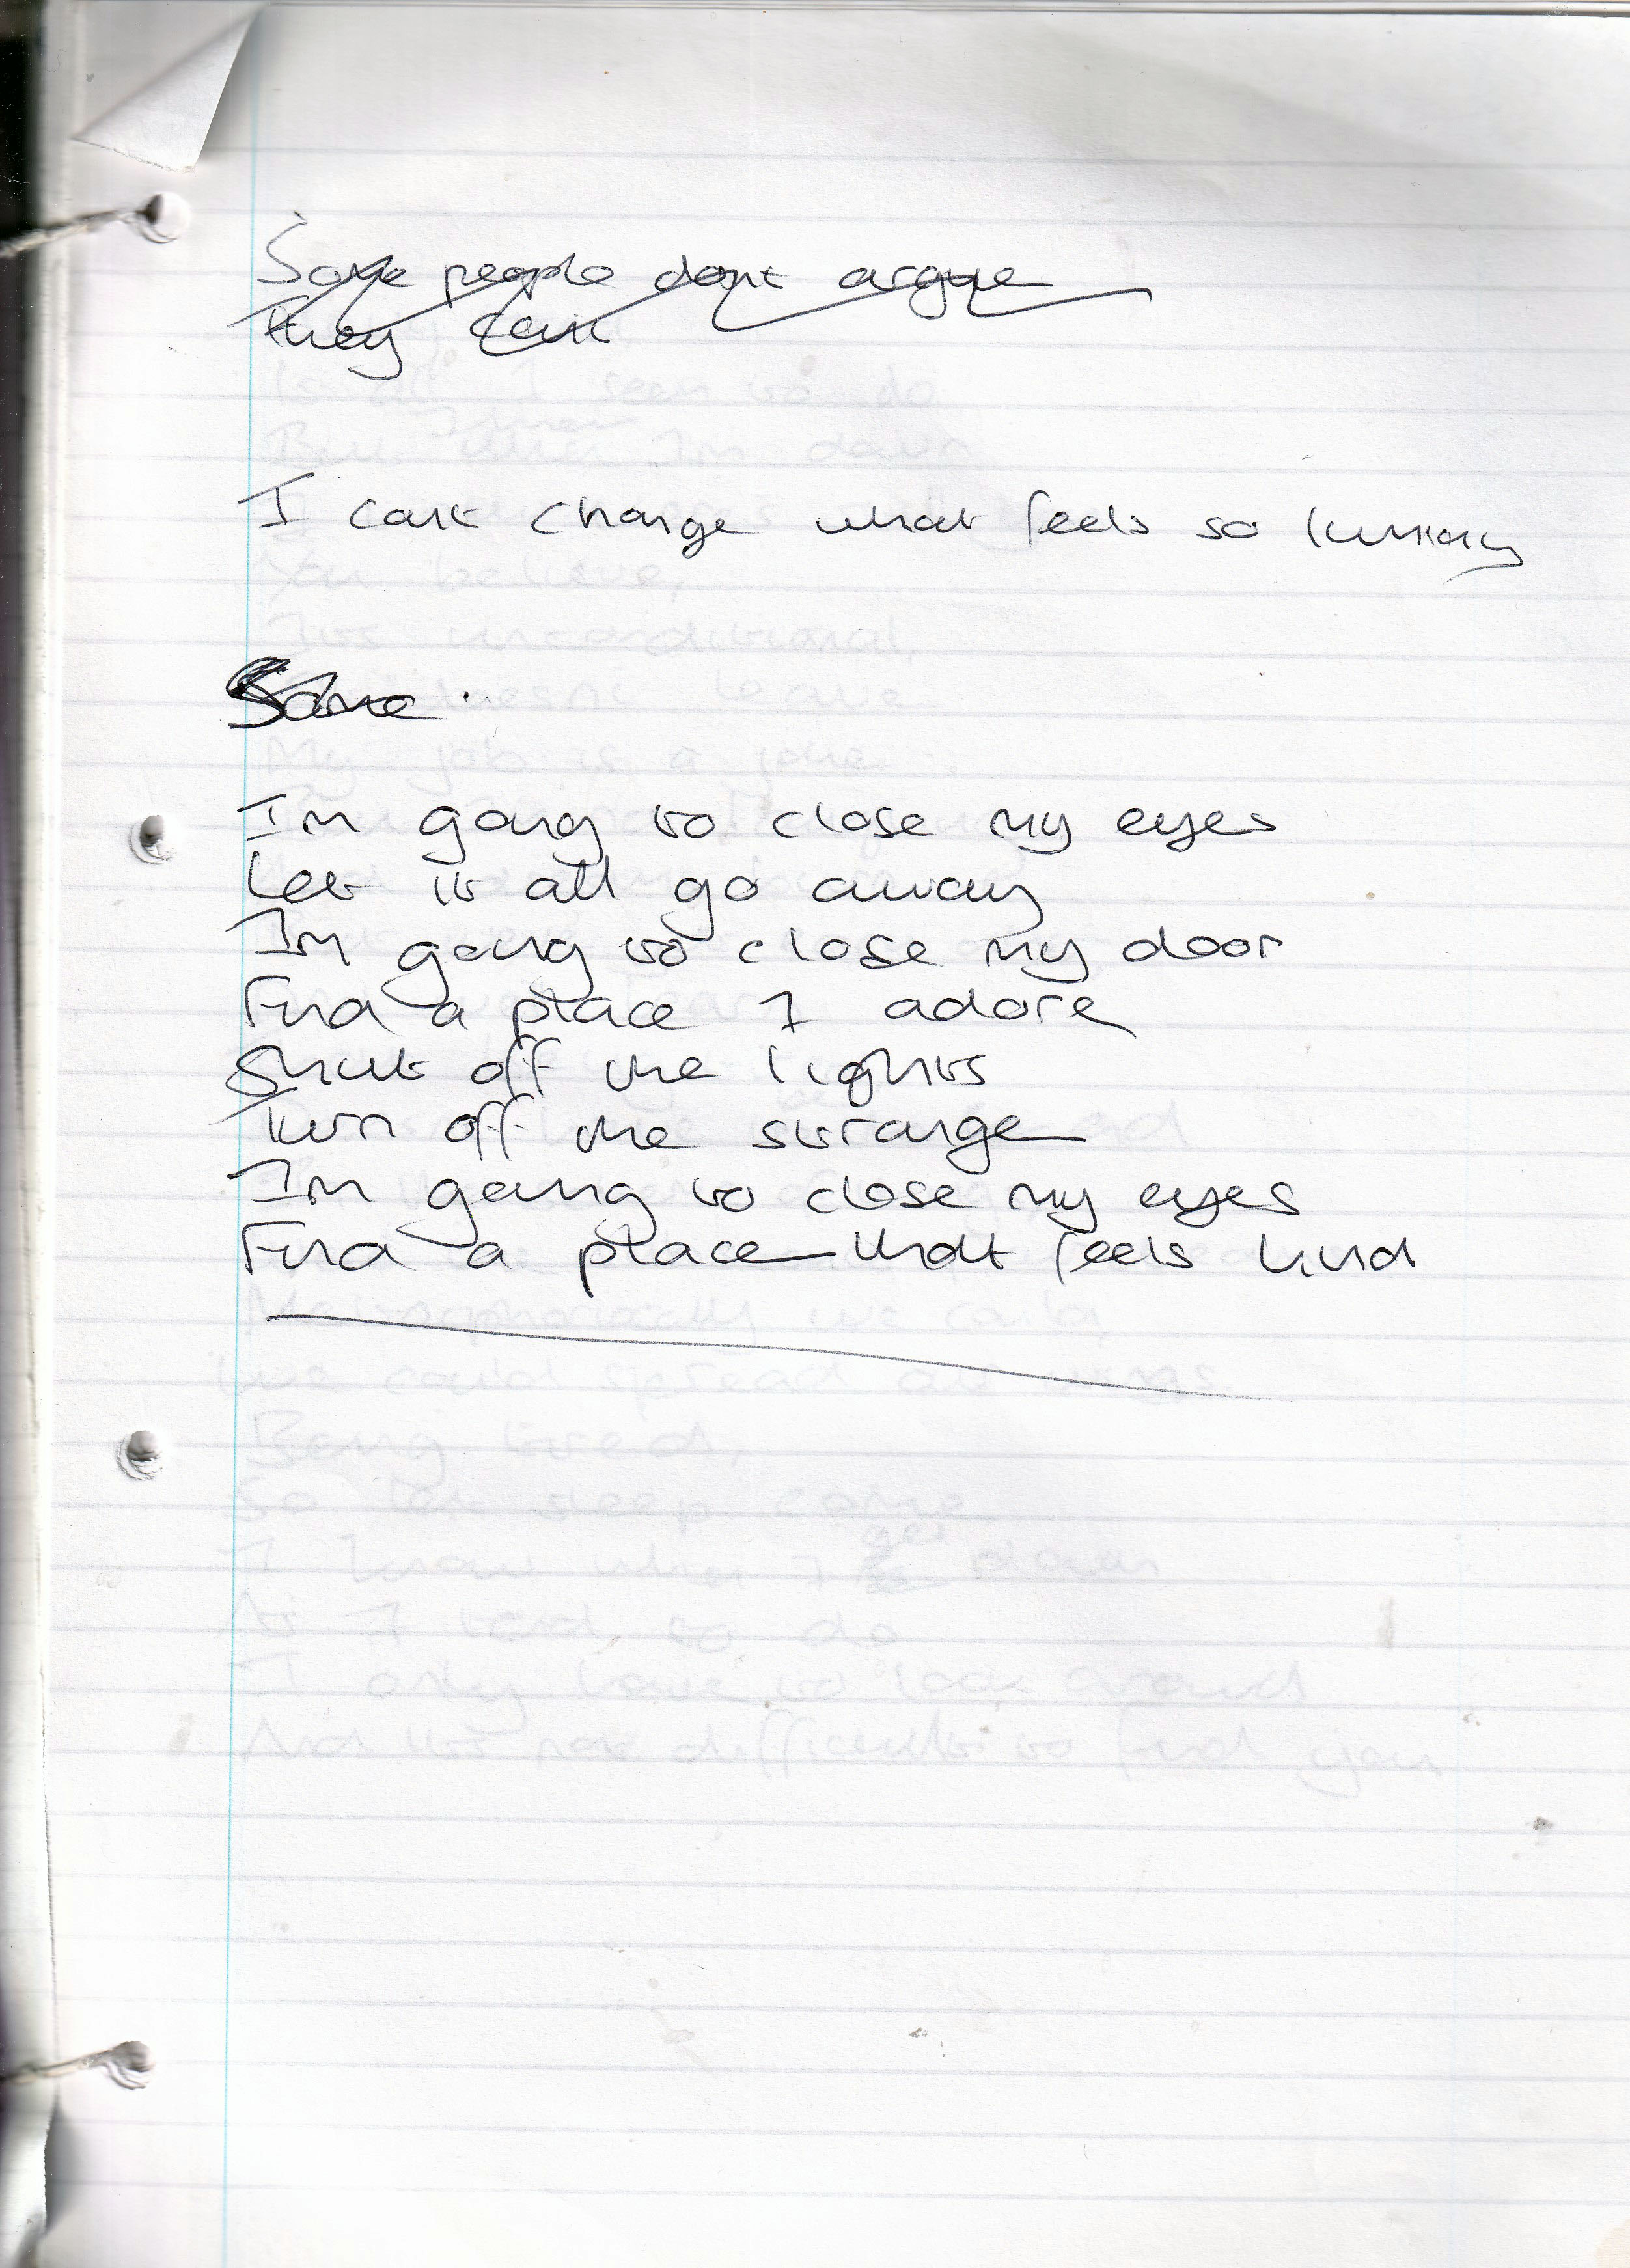 Some people dont argue
They cant
I cant change what feels so
Some
Im going to close my eyes
Let it all go away
Im going to close my door
Find a place I adore
Shut off the lights
Turn off the strange
Im going to close my eyes
Find a place that feels kind